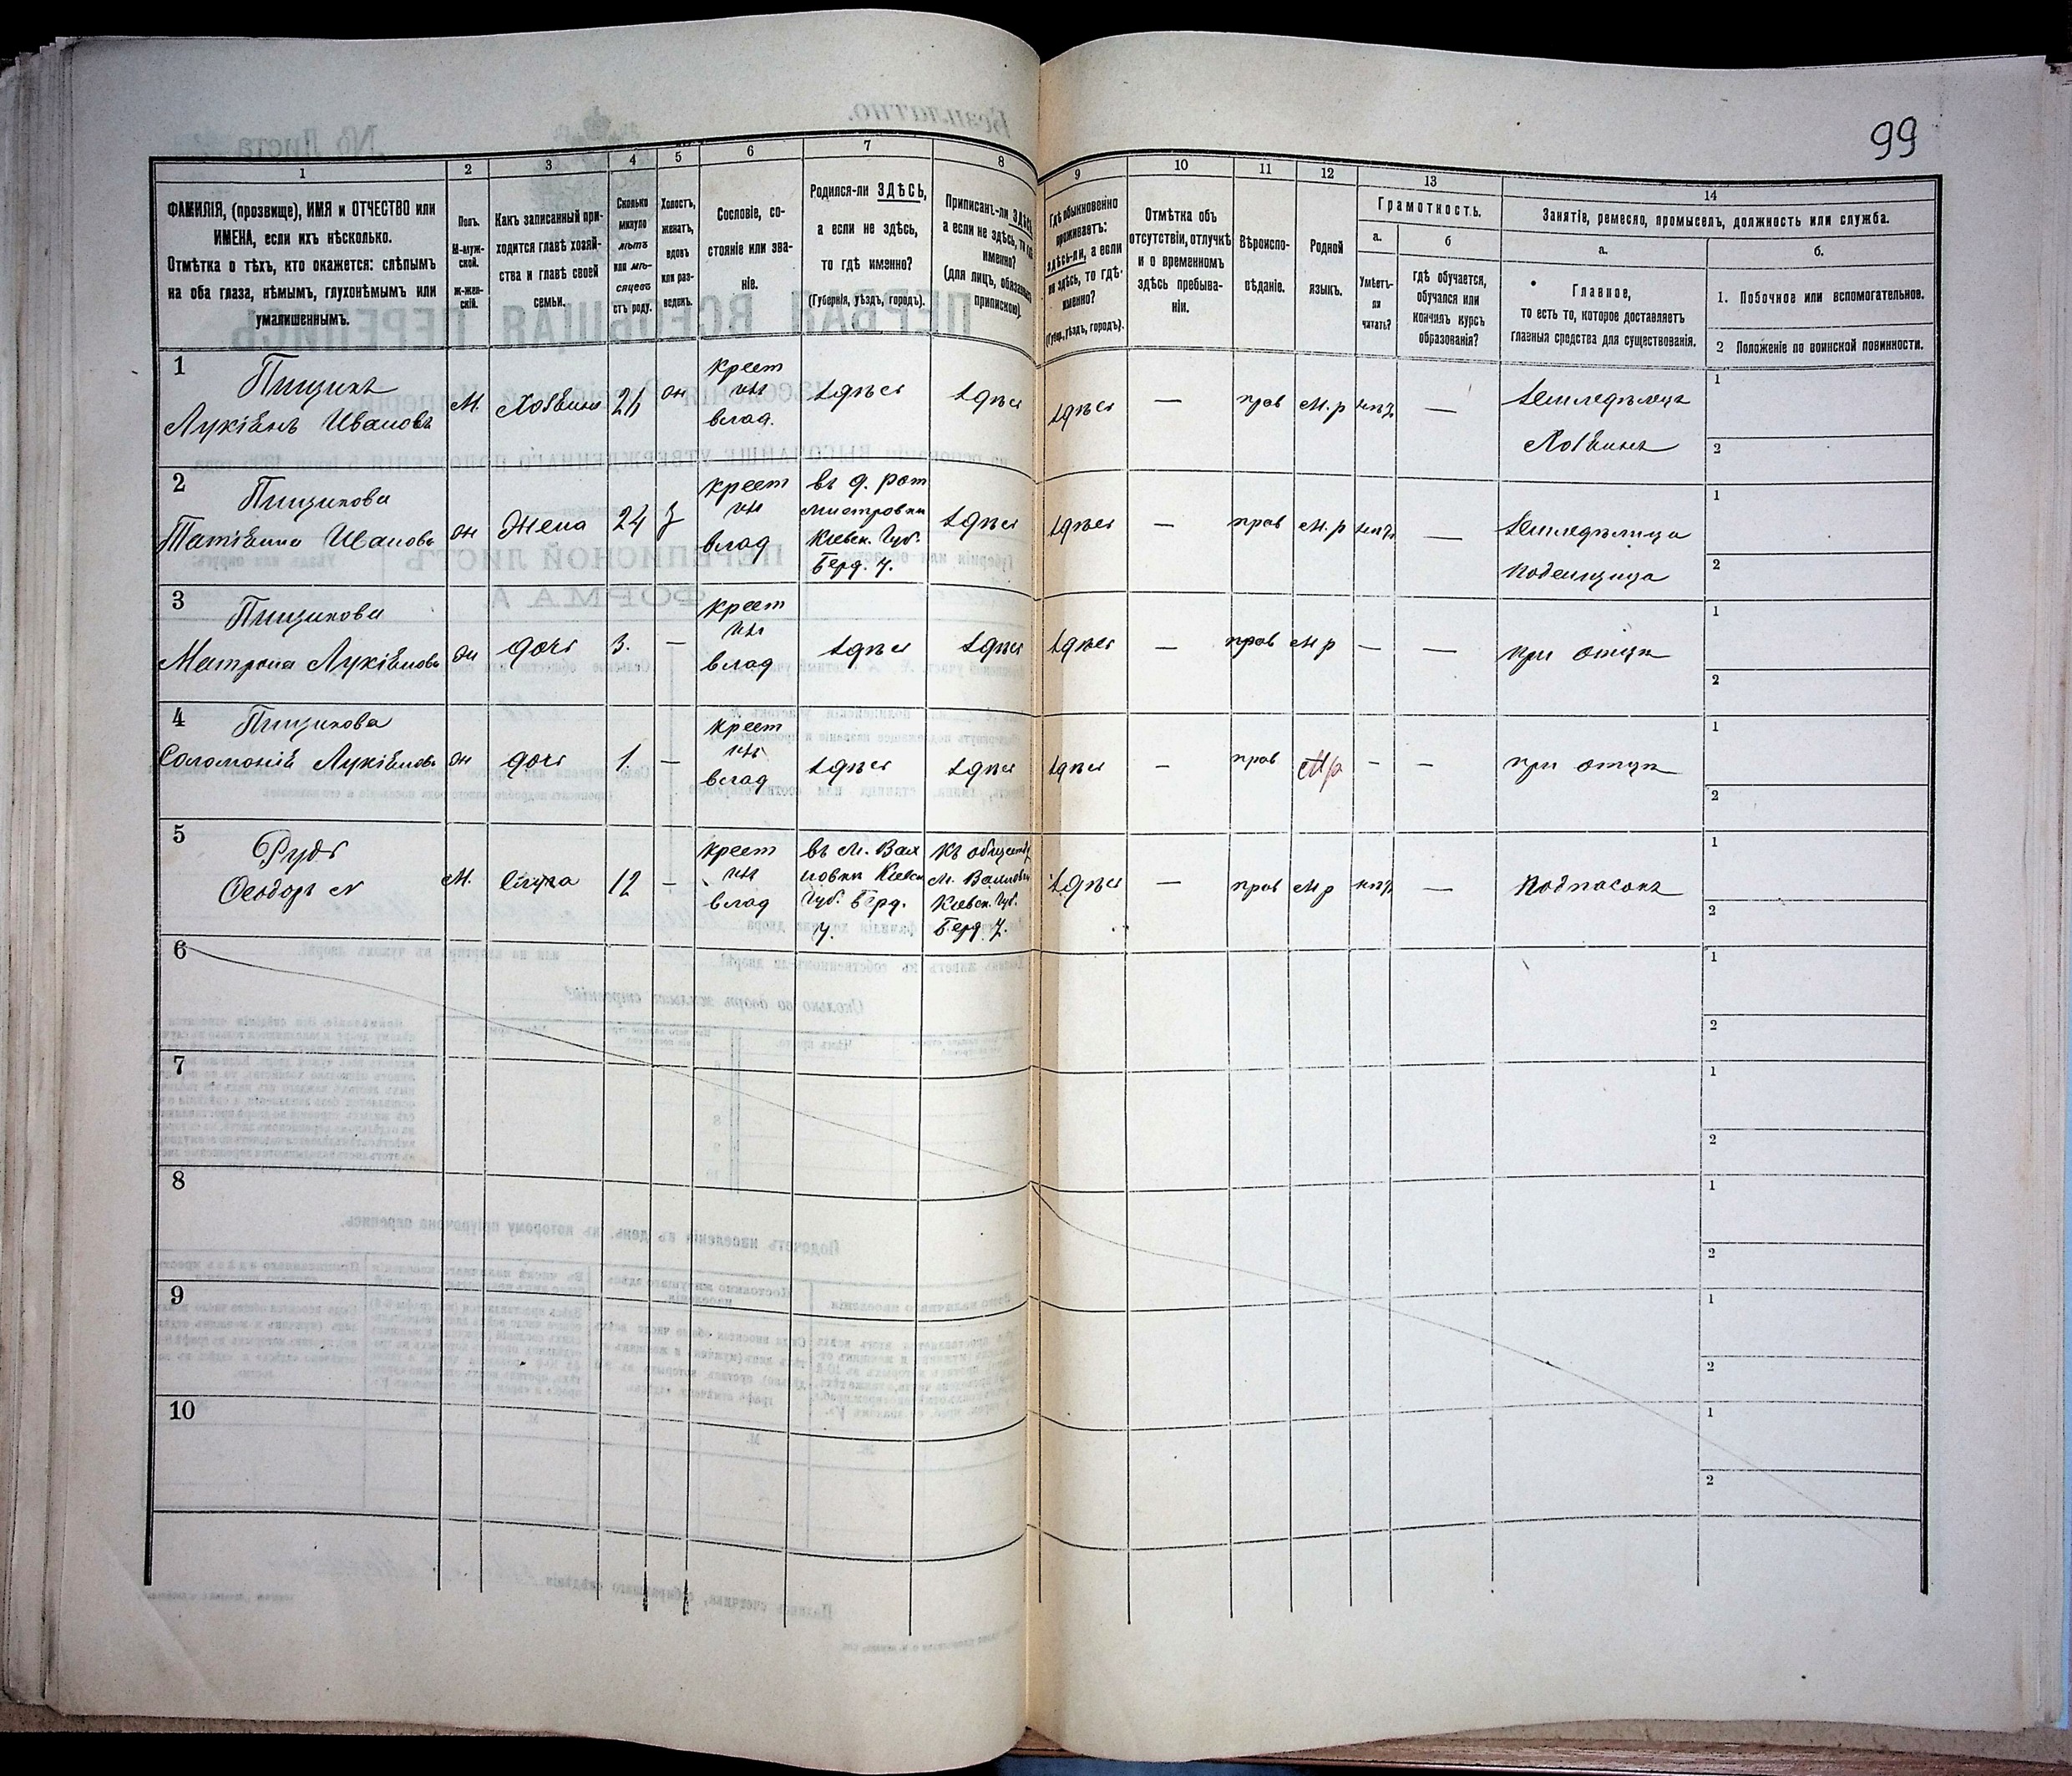 99
1
2
3
4
5
6
7
8
9
10
11
12
13
14
ФАМИЛІЯ, (прозвище), ИМЯ и ОТЧЕСТВО или
ИМЕНА, если ихъ нѣсколько.
Отмѣтка о тѣхъ, кто окажется: слѣпымъ
на оба глаза, нѣмымъ, глухонѣмымъ или
умалишеннымъ.
Полъ.
М-муж-
ской.
Ж-жен-
скій.
Какъ записанный при-
ходится главѣ хозяй-
ства и главѣ своей
семьи.
Сколько
минуло
лѣтъ
или мѣ-
сяцевъ
отъ роду.
Холостъ,
женатъ,
вдовъ
или раз-
веденъ.
Сословіе, со-
стояніе или зва-
ніе.
Родился-ли ЗДѢСЬ,
а если не здѣсь,
то гдѣ именно?
(Губернія, уѣздъ, городъ).
Приписанъ-ли ЗДѢСЬ,
а если не здѣсь, то гдѣ
именно?
(для лицъ, обязанныхъ
припискою).
Гдѣ обыкновенно
проживаетъ:
здѣсь-ли, а если
не здѣсь, то гдѣ-
именно?
(Губер., уѣздъ, городъ).
Отмѣтка объ
отсутствіи, отлучкѣ
и о временномъ
здѣсь пребыва-
ніи.
Вѣроиспо-
вѣданіе.
Родной
языкъ.
Грамотность.
а.
Умѣетъ-
ли
читать?
б
Гдѣ обучается,
обучался или
кончилъ курсъ
образованія?
Занятіе, ремесло, промыселъ, должность или служба.
а.
Главное,
то есть то, которое доставляетъ
главныя средства для существованія.
б.
1. Побочное или вспомогательное.
2 Положеніе по воинской повинности.
1
Пищикъ
Лукіянъ Ивановъ
М. Хозяинъ
крест
изъ
влад.
здѣсь здѣсь здѣсь — прав М.р нѣтъ —
Земледѣлецъ
Хозяинъ
1
2
2
Пищикова
Татіянна Иванова
Ж Жена 24 З
крест
изъ
влад
въ д. Рот
мистровки
Кіевск. Губ.
Берд. У.
здѣсь здѣсь — прав М.р нѣтъ —
Земледѣлица
Поденщица
1
2
3
Пищикова
Матрона Лукіянова
Ж дочь 3. —
крест
изъ
влад
здѣсь здѣсь здѣсь — прав М р — —
при отцѣ
1
2
4
Пищикова
Соломонія Лукіянова
Ж дочь 1. —
крест
изъ
влад
здѣсь здѣсь здѣсь — прав М р — —
при отцѣ
1
2
5
Рудь
Феодоръ N
М. Слуга 12 —
крест
изъ
влад
въ М. Вах
новки Кіевск
Губ. Берд.
У.
Къ обществу
М. Вахновки
Кіевск. Губ.
Берд. У.
здѣсь — прав М р нѣтъ —
Подпасокъ
1
2
6
1
2
7
1
2
8
1
2
9
1
2
10
1
2